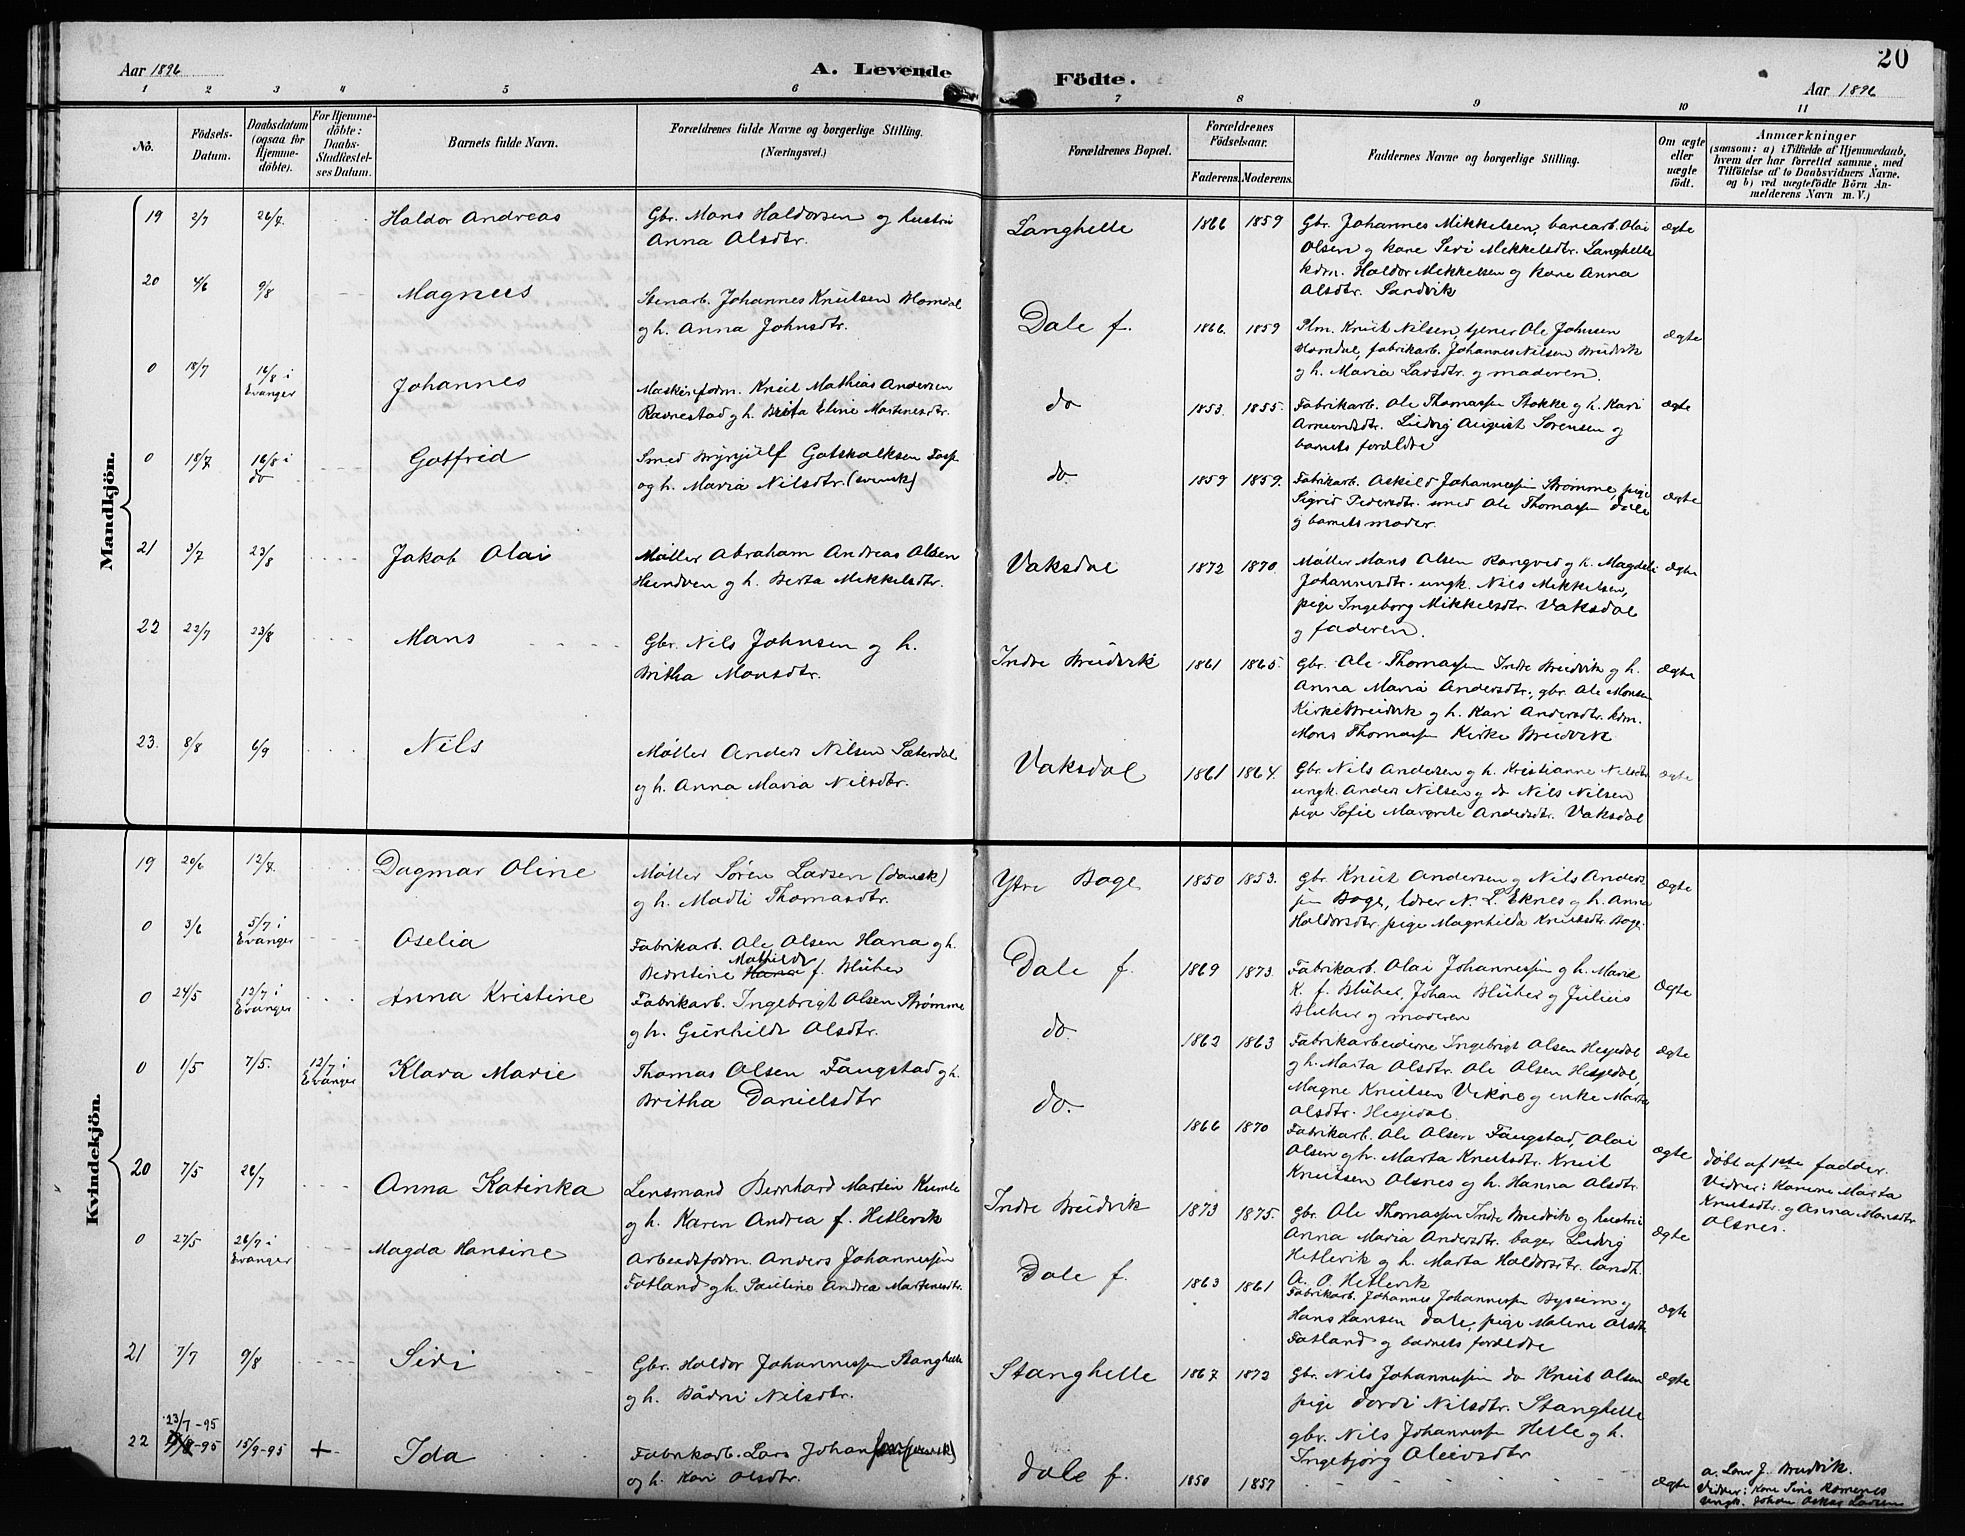 20
Aar 1896
A. Levende
Födte.
Aar 1896
1 2 3 4 5 6 7 8 9 10 11
No.
Födsels-
Datum.
Daabsdatum
(ogsaa for
Hjemme-
döbte).
For Hjemme-
döbte:
Daabs-
Stadfæstel-
ses Datum.
Barnets fulde Navn.
Forældrenes fulde Navne og borgerlige Stilling.
(Næringsvei.)
Forældrenes Bopæl.
Forældrenes
Födselsaar.
Faderens. Moderens.
Faddernes Navne og borgerlige Stilling.
Om ægte
eller
uægte
födt.
Anmærkninger
(saasom: a) i Tilfælde af Hjemmedaab,
hvem der har forrettet samme, med
Tilföielse af to Daabsvidners Navne.
og b) ved uægtefödte Börn An-
melderens Navn m. V.)
Mandkjön.
19 2/7 26/7. Haldor Andreas
Gbr. Mons Haldorsen og hustru
Anna Olsdtr.
Langhelle 1866 1859
Gbr. Johannes Mikkelsen, banearb. Olai
Olsen og kone Siri Mikkelsdtr. Langhelle
kdm. Haldor Mikkelsen og kone Anna
Olsdtr. Sandvik
ægte
20 4/6 9/8 Magnus
Stenarb. Johannes Knutsen Homdal
og h. Anna Johnsdtr.
Dale f. 1866. 1859
Plm. Knut Nilsen, tjener Ole Johnsen
Homdal, fabrikarb. Johannes Nilsen Bruvik
og h. Maria Larsdtr. og moderen.
ægte
0 18/7 16/8 i
Evanger
Johannes
Maskinform. Knut Mathias Andersen
Ravnestad og h. Berta Eline Martinesdtr.
do 1853. 1855.
Fabrikarb. Ole Thomassen Stokke og h. Kari
Amundsdtr. Ludvig August Sørensen og
barnets forældre
ægte
0 18/7 16/8 i
do
Gotfrid
Smed Brynjulf Gotskalksen
og h. Maria Nilsdtr. (svensk)
do 1859 1859.
Fabrikarb. Askild Johannessen Strømme, pige
Sigrid Pedersdtr. smed Ole Thomassen Dale
og barnets moder.
ægte
21 3/7 23/8 Jakob Olai
Møller Abraham Andreas Olsen
Hundven og h. Berta Mikkelsdtr.
Vaksdal 1872 1870.
Møller Mons Olsen Rongved og h. Magdeli
Johannesdtr. ungk. Nils Mikkelsen,
pige Ingeborg Mikkelsdtr. Vaksdal
og faderen.
ægte
22 22/7 23/8 Mons
Gbr. Nils Johnsen og h.
Britha Monsdtr.
Indre Bruvik 1861 1865.
Gbr. Ole Thomassen Indre Bruvik og h.
Anna Maria Andersdtr., gbr. Ole Monsen
KirkeBruvik og h. Kari Andersdtr. kdm.
Mons Thomassen Kirke Bruvik
ægte
23. 8/8 6/9 Nils
Møller Anders Nilsen Sæterdal
og h. Anna Maria Nilsdtr.
Vaksdal 1861 1864.
Gbr. Nils Andersen og h. Kristianne Nilsdtr.
ungk. Anders Nilsen og do Nils Nilsen
pige Sofie Margrete Andersdtr. Vaksdal
ægte
Kvindekjön.
19 20/6 12/7. Dagmar Oline
Møller Søren Larsen (dansk)
og h. Madli Thomasdtr.
Ytre Boge 1850 1853.
Gbr. Knut Andersen og Nils Anders
sen Boge, lærer N. L. Eknes og h. Anna
Haldorsdtr. pige Magnhilda Knutsdtr. Boge.
ægte
0 3/6 5/7 i
Evanger
Oselia
Fabrikarb. Ole Olsen Hana og h.
Beretine Mathilde f. Blüher
Dale f. 1869 1873.
Fabrikarb. Olai Johannessen og h. Marie
K. f. Blüher, Johan Blüher og Julius
Blüher og moderen
ægte
0 24/5 12/7 i
Evanger
Anna Kristine
Fabrikarb. Ingebrigt Olsen Strømme
og h. Gunhilde Olsdtr.
do. 1862 1863
Fabrikarbeiderne Ingebrigt Olsen Hesjedal
og h. Marta Olsdtr. Ole Olsen Hesjedal,
Magne Knutsen Vikne og enke Marta
Olsdtr. Hesjedal
ægte
0 1/5 7/5. 12/7 i
Evanger
Klara Marie
Thomas Olsen Faugstad og h.
Britha Danielsdtr
do. 1866 1870
Fabrikarb. Ole Olsen Faugstad, Olai
Olsen og h. Marta Knutsdtr. Knut
Knutsen Olsnes og h. Hanna Olsdtr.
ægte
Døbt af 1ste fadder.
Vidner: Karine Marta
Knutsdtr. og Anna Monsdtr.
Olsnes.
20 7/5 26/7 Anna Katinka
Lensmand Bernhard Martin Kumle
og h. Karen Andrea f. Hetlevik
Indre Bruvik 1873 1875.
Gbr. Ole Thomassen Indre Bruvik og hustru
Anna Maria Andersdtr. bager Ludvig
Hetlevik og h. Marta Haldorsdtr. landh.
A. O. Hetlevik
ægte
0 27/5 26/7 i
Evanger
Magda Hansine
Arbeidsform. Anders Johannessen
Fatland og h. Pauline Andrea Martinesdtr.
Dale f. 1863 1861
Fabrikarb. Johannes Johannessen Byseim og
Hans Hansen Dale, pige Malene Olsdtr.
Fatland og barnets forældre
ægte
21 7/7 9/8 Siri
Gbr. Haldor Johannessen Stanghelle
og h. Bådni Nilsdtr.
Stanghelle 1867 1872
Gbr. Nils Johannessen do Knut Olsen
pige Dordi Nilsdtr. Stanghelle
gbr. Nils Johannessen Helle og h.
Ingebjørg Oleivsdtr
ægte
22 23/7-95
15/9-95 + Ida
Fabrikarb. Lars Johansson (svensk)
og h. Kari Olsdtr.
Dale f. 1850 1857
ægte
a. Lars J. Bruvik.
Vidner: Kone Siri Romenes
ungk. Johan Oskar Larsen